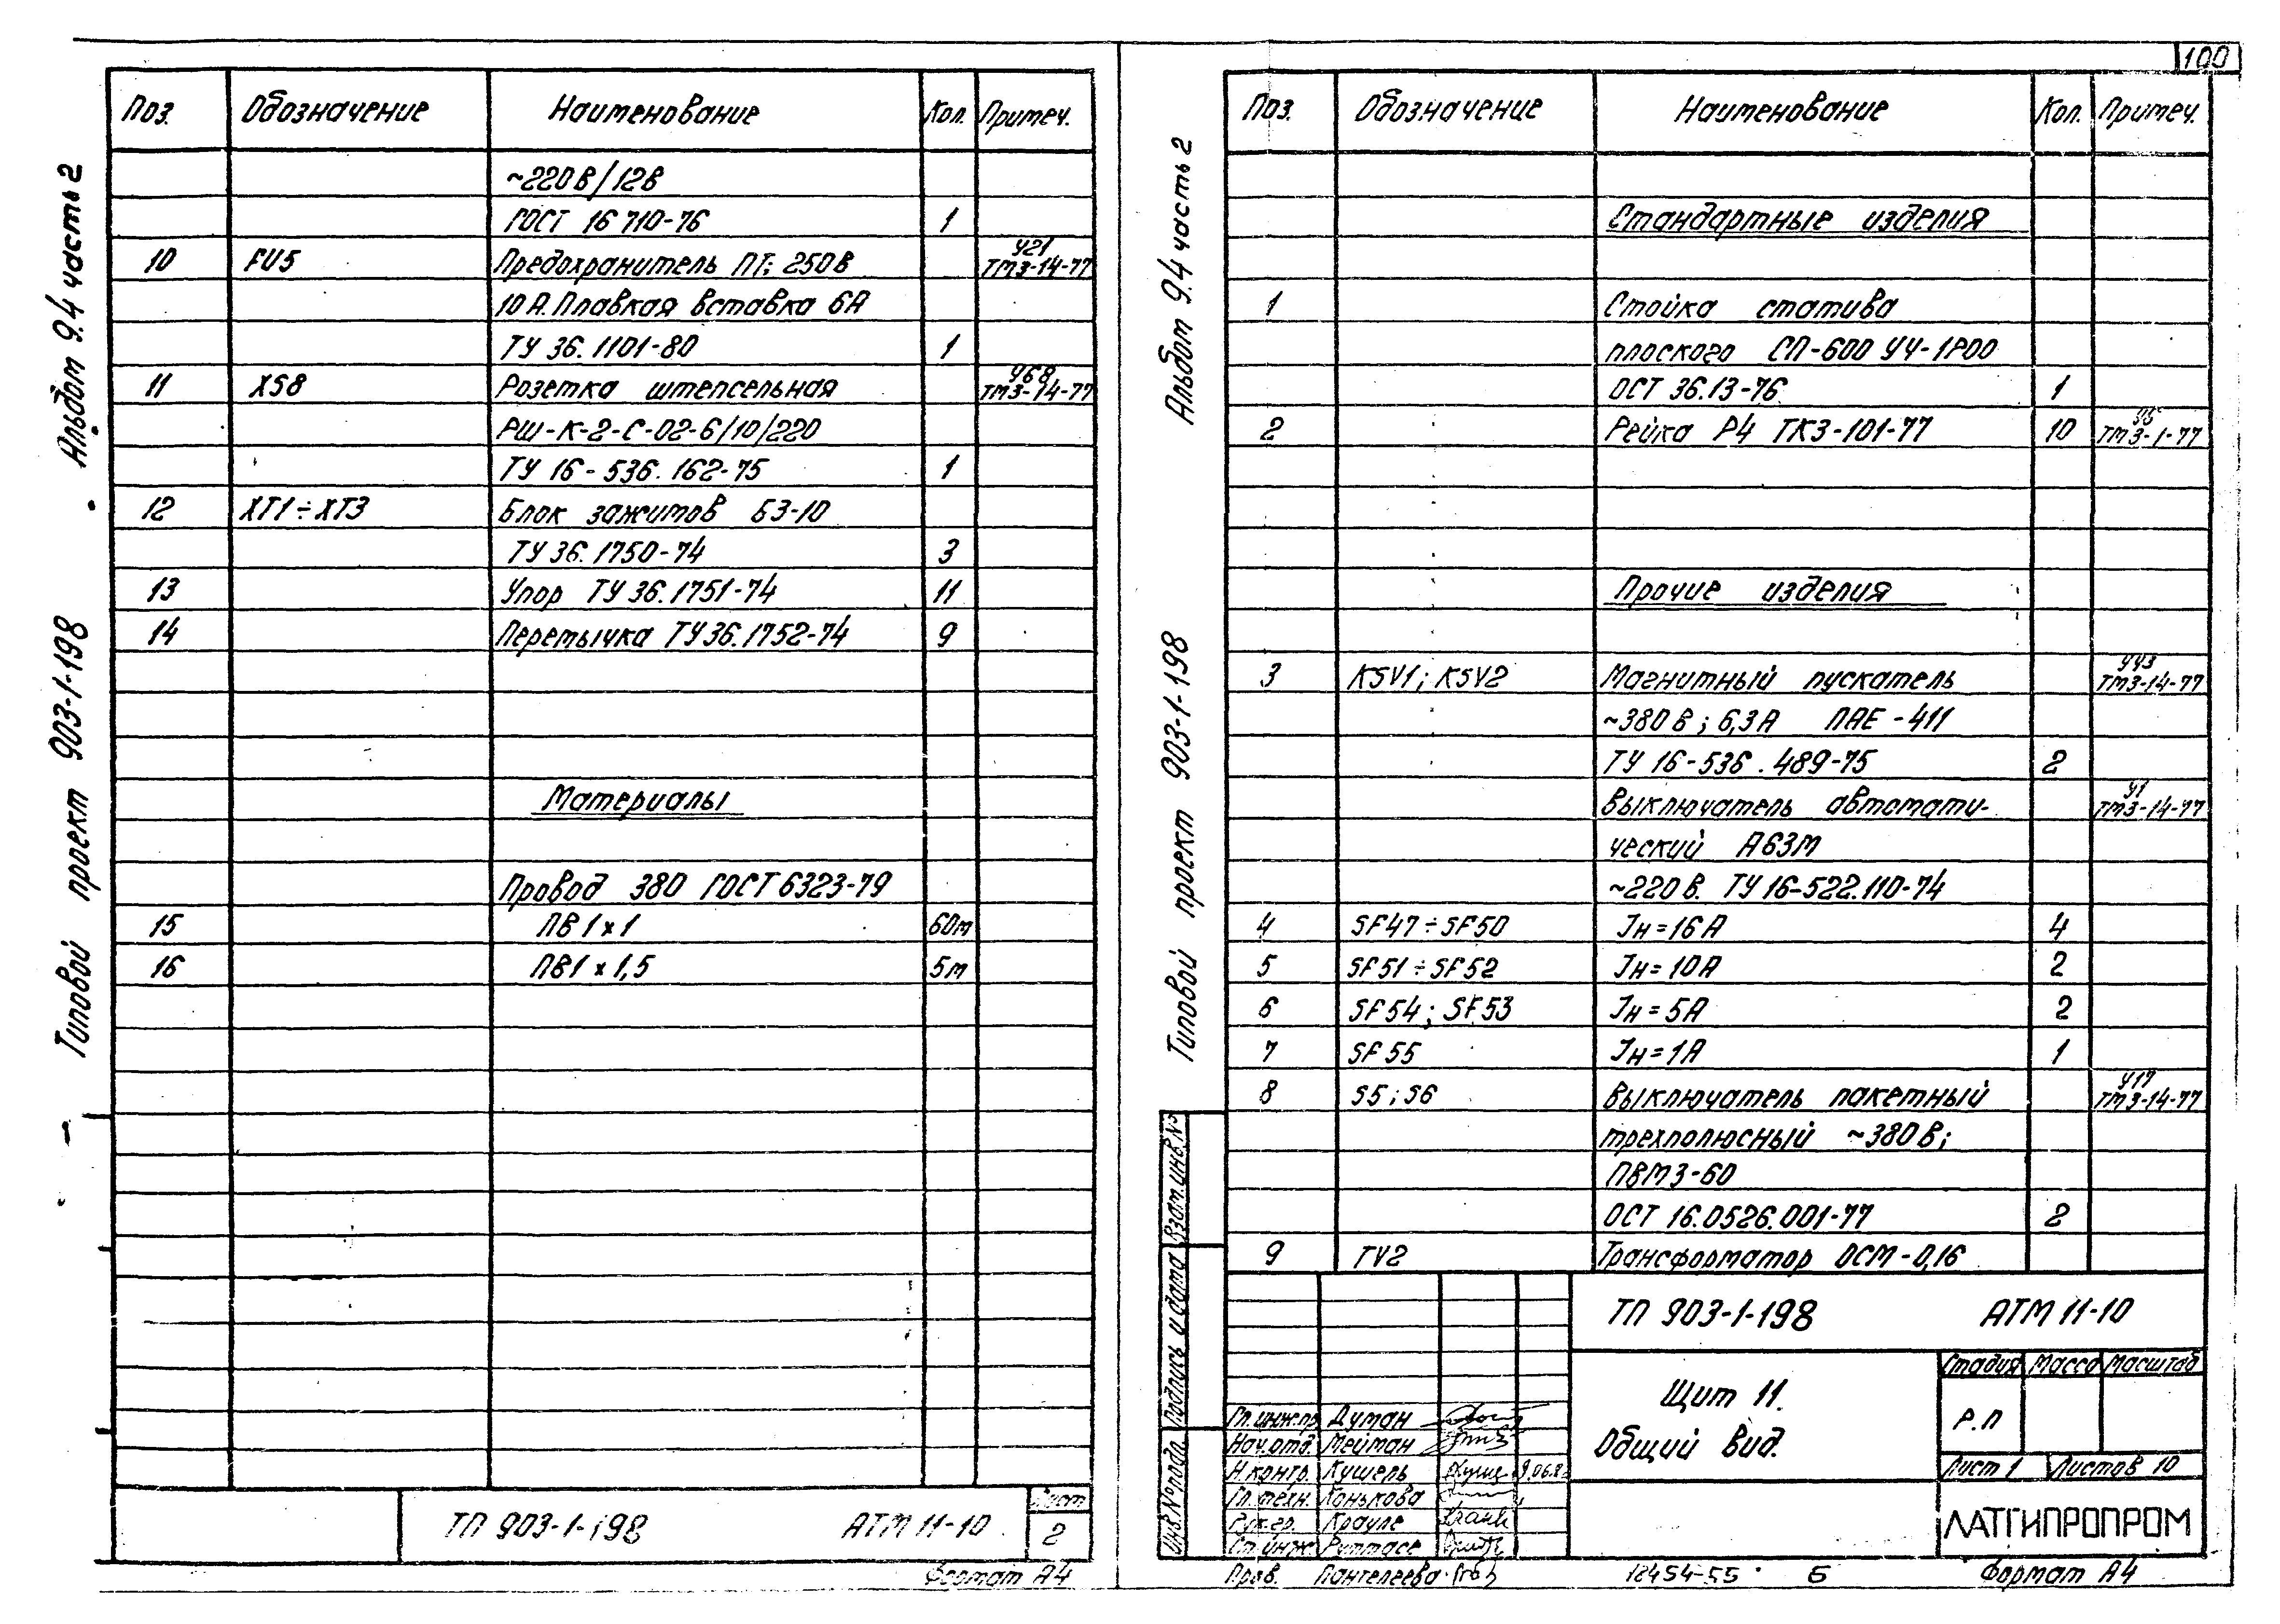 100
Альбом 9.4 часть 2
Типовой проект 903-1-198
Поз. Обозначение Наименование Кол. Примеч.
~220В/12В
ГОСТ 16 710-76 1
10 FU5 Предохранитель ПТ; 250В У21 ТМ3-14-77
10А. Плавкая вставка 6А
ТУ 36.1101-80 1
11 XS8 Розетка штепсельная У68 ТМ3-14-77
РШ-К-2-С-02-6/10/220
ТУ 16-536.162-75 1
12 XT1÷XT3 Блок зажимов БЗ-10
ТУ 36.1750-74 3
13 Упор ТУ 36.1751-74 11
14 Перемычка ТУ 36.1752-74 9
Материалы
Провод 380 ГОСТ 6323-79
15 ПВ 1×1 60м
16 ПВ1×1,5 5м
ТП 903-1-198 АТМ 11-10 Лист 2
Формат А4
Альбом 9.4 часть 2
Типовой проект 903-1-198
Поз. Обозначение Наименование Кол. Примеч.
Стандартные изделия
1 Стойка статива
плоского СП-600 УЧ-1Р00
ОСТ 36.13-76 1
2 Рейка Р4 ТК3-101-77 10 ТМ3-1-77
Прочие изделия
3 KSV1; KSV2 Магнитный пускатель У43 ТМ3-14-77
~380В; 6,3А ПАЕ-411
ТУ 16-536.489-75 2
Выключатель автомати- У1 ТМ3-14-77
ческий А63М
~220В. ТУ 16-522.110-74
4 SF47÷SF50 Jн=16А 4
5 SF51÷SF52 Jн=10А 2
6 SF54; SF53 Jн=5А 2
7 SF55 Jн=1А 1
8 S5; S6 Выключатель пакетный У17 ТМ3-14-77
трехполюсный ~380В;
ПВМ3-60
ОСТ 16.0526.001-77 2
9 TV2 Трансформатор ОСМ-0,16
Взам.инв.№
Подпись и дата
Инв.№подл.
ТП 903-1-198 АТМ 11-10
Щит 11.
Общий вид.
Стадия Масса Масштаб
Р.П
Лист 1 Листов 10
ЛАТГИПРОПРОМ
Гл.инж.пр. Думан
Нач.отд. Мейман
Н.контр. Кушель
Гл.техн. Конькова
Рук.гр. Крауле
Ст.инж. Руттасе
Пров. Пантелеева
18454-55 Б Формат А4